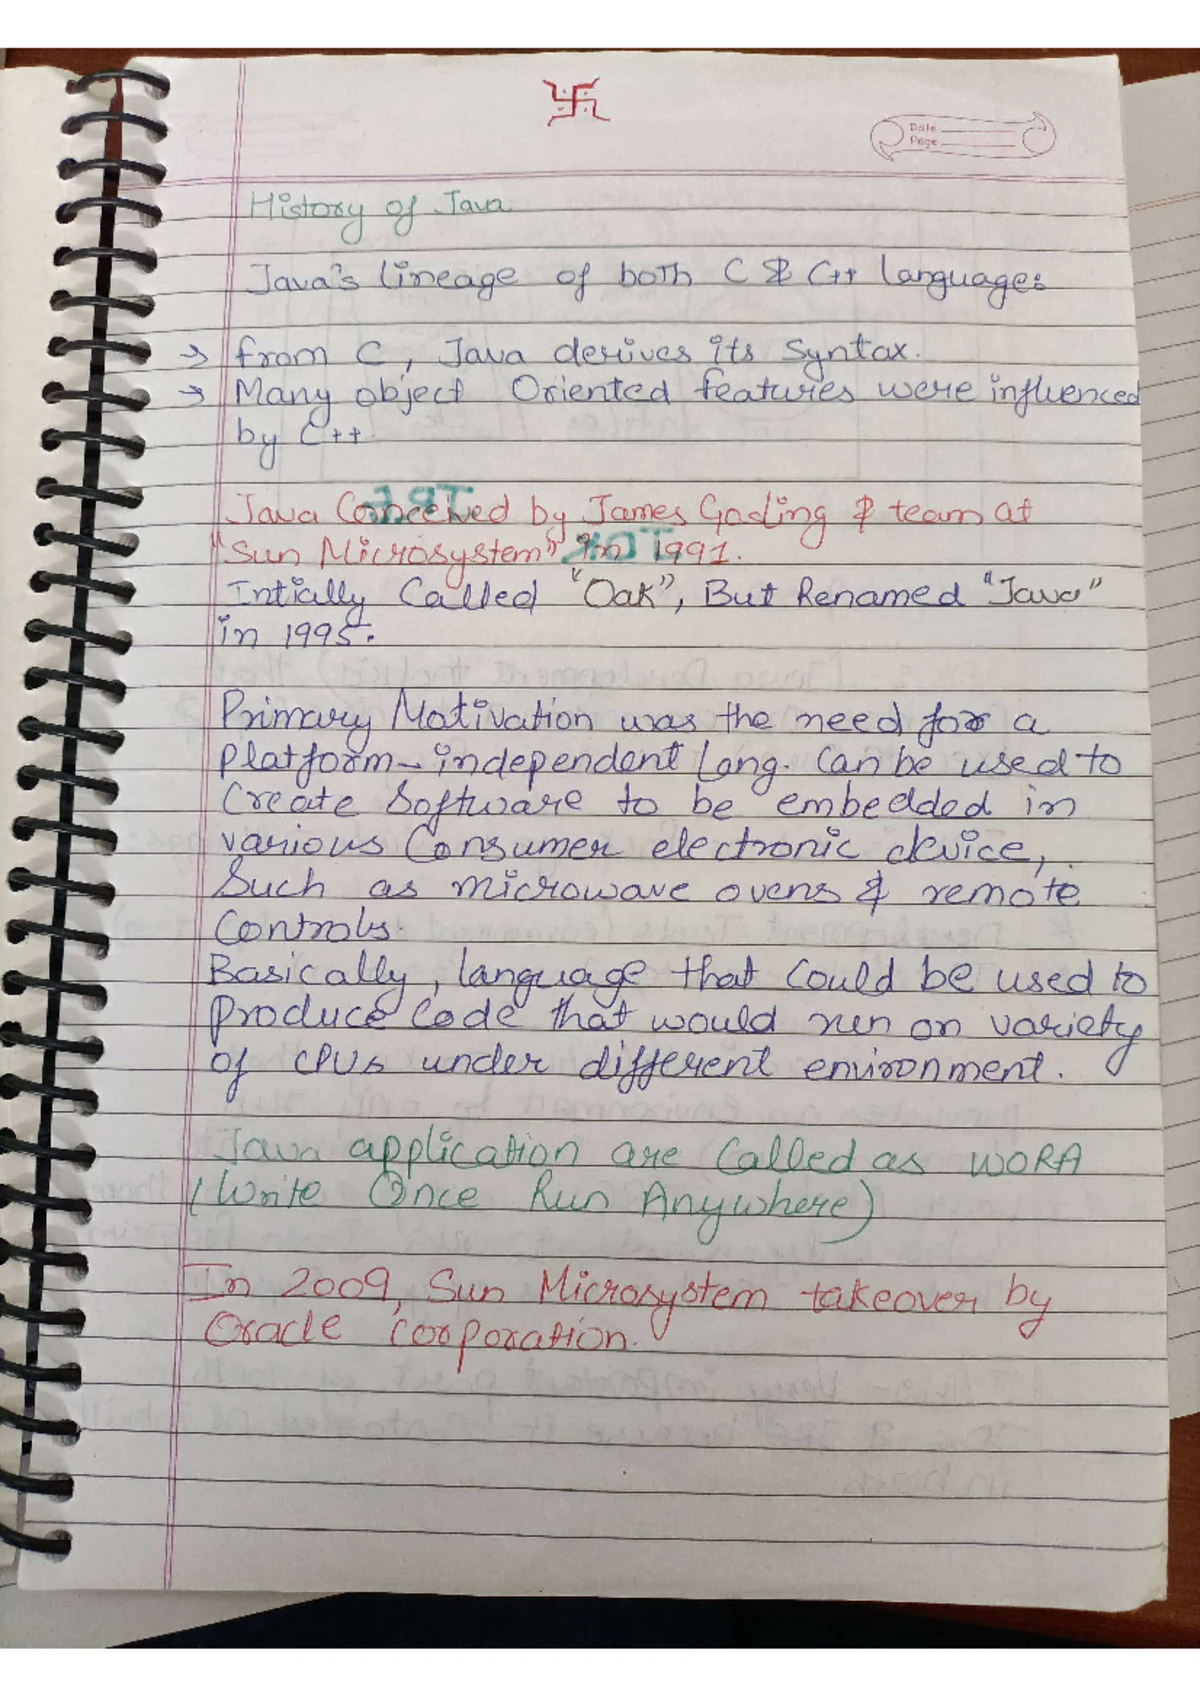 Date
Page
History of Java
Java's lineage of both C & C++ languages
→ from C, Java derives its Syntax.
→ Many object Oriented features were influenced
by C++
Java Conceived by James Gosling & team at
"Sun Microsystem" in 1991.
Intially Called "Oak", But Renamed "Java"
in 1995.
Primary Motivation was the need for a
Platform-independent Lang. Can be used to
Create Software to be embedded in
various Consumer electronic device,
Such as microwave ovens & remote
Controls.
Basically, language that Could be used to
produce Code that would run on variety
of CPUs under different environment.
Java application are Called as WORA
(Write Once Run Anywhere)
In 2009, Sun Microsystem takeover by
Oracle Corporation.